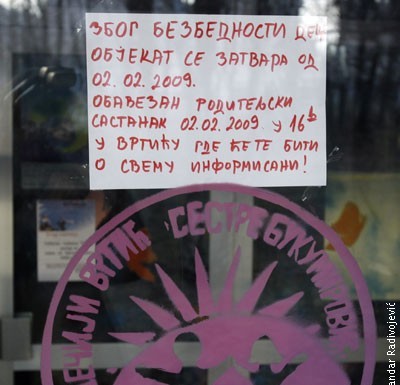 ЗБОГ БЕЗБЕДНОСТИ ДЕЦЕ
ОБЈЕКАТ СЕ ЗАТВАРА ОД
02.02.2009.
ОБАВЕЗАН РОДИТЕЉСКИ
САСТАНАК 02.02.2009 У 16h
У ВРТИЋУ ГДЕ ЋЕТЕ БИТИ
О СВЕМУ ИНФОРМИСАНИ!
ДЕЧИЈИ ВРТИЋ "СЕСТРЕ БУКУМИРОВИЋ
andar Radivojević